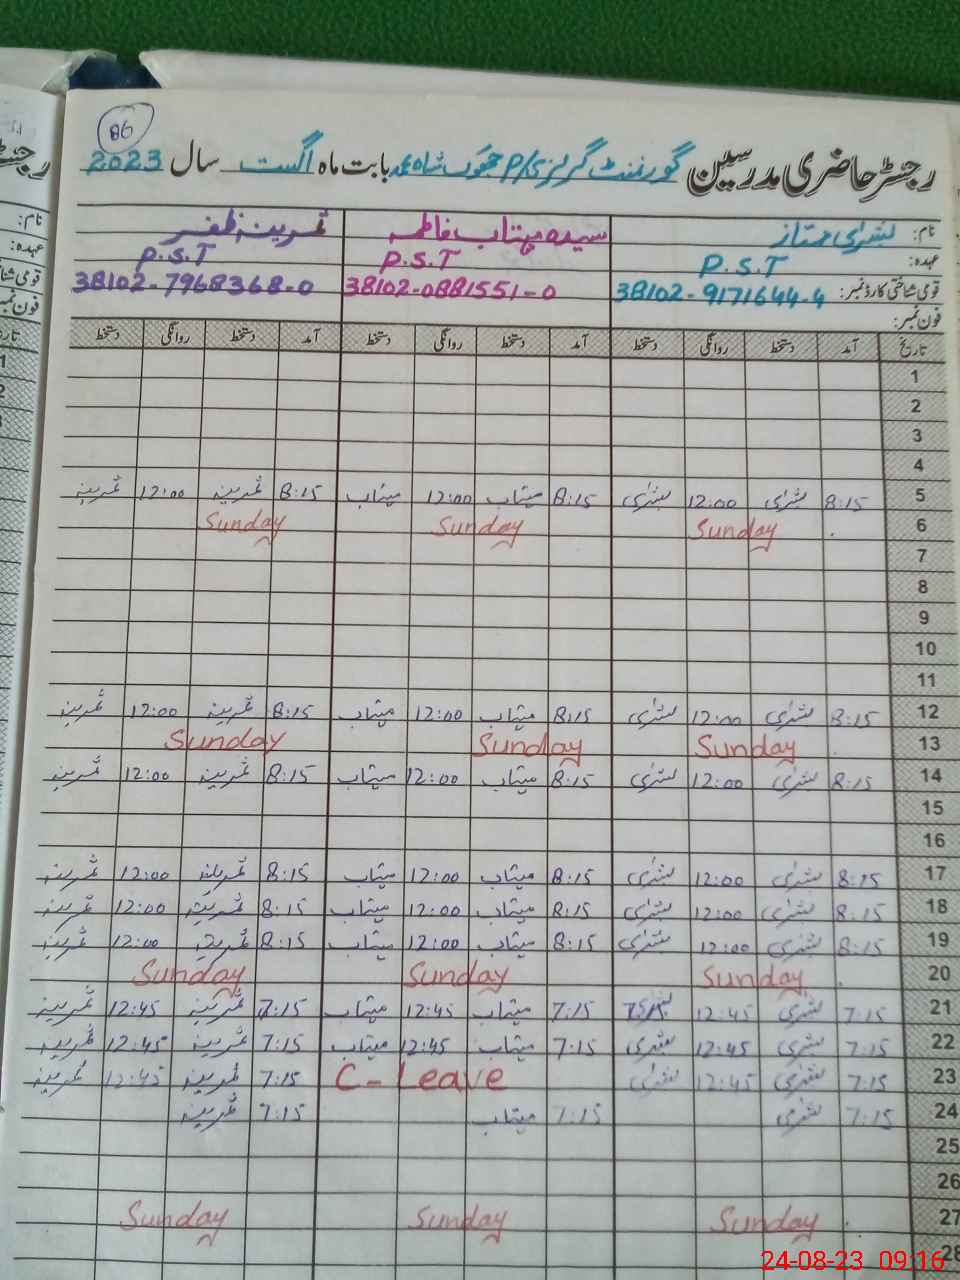 86
رجسٹر حاضری مدرسین گورنمنٹ گرلز P/ شاہ بابت ماہ اگست سال 2023
نام: بشریٰ ممتاز سیدہ مہتاب فاطمہ ثمرینہ ظفر
عہدہ: P.S.T P.S.T P.S.T
قومی شناختی کارڈ نمبر: 38102-9171644-4 38102-0881551-0 38102-7968368-0
فون نمبر:
تاریخ آمد دستخط روانگی دستخط آمد دستخط روانگی دستخط آمد دستخط روانگی دستخط
1
2
3
4
5 8:15 بشریٰ 12:00 بشریٰ 8:15 مہتاب 12:00 مہتاب 8:15 ثمرینہ 12:00 ثمرینہ
6 Sunday Sunday Sunday
7
8
9
10
11
12 8:15 بشریٰ 12:00 بشریٰ 8:15 مہتاب 12:00 مہتاب 8:15 ثمرینہ 12:00 ثمرینہ
13 Sunday Sunday Sunday
14 8:15 بشریٰ 12:00 بشریٰ 8:15 مہتاب 12:00 مہتاب 8:15 ثمرینہ 12:00 ثمرینہ
15
16
17 8:15 بشریٰ 12:00 بشریٰ 8:15 مہتاب 12:00 مہتاب 8:15 ثمرینہ 12:00 ثمرینہ
18 8:15 بشریٰ 12:00 بشریٰ 8:15 مہتاب 12:00 مہتاب 8:15 ثمرینہ 12:00 ثمرینہ
19 8:15 بشریٰ 12:00 بشریٰ 8:15 مہتاب 12:00 مہتاب 8:15 ثمرینہ 12:00 ثمرینہ
20 Sunday Sunday Sunday
21 7:15 بشریٰ 12:45 بشریٰ 7:15 مہتاب 12:45 مہتاب 7:15 ثمرینہ 12:45 ثمرینہ
22 7:15 بشریٰ 12:45 بشریٰ 7:15 مہتاب 12:45 مہتاب 7:15 ثمرینہ 12:45 ثمرینہ
23 7:15 بشریٰ 12:45 بشریٰ C-Leave 7:15 ثمرینہ 12:45 ثمرینہ
24 7:15 بشریٰ 7:15 مہتاب 7:15 ثمرینہ
25
26
27 Sunday Sunday Sunday
28
24-08-23 09:16